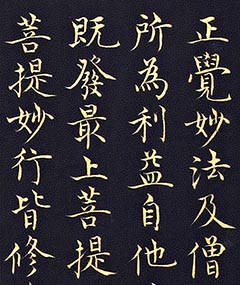 正覺妙法及僧
所為利益自他
既發最上菩提
菩提妙行皆修